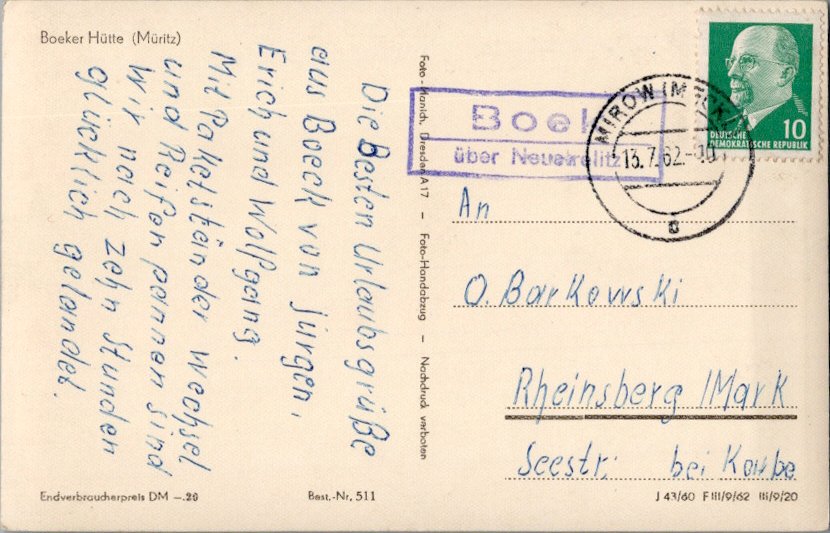 Boeker Hütte (Müritz)
Die Besten Urlaubsgrüße
aus Boeck von Jürgen,
Erich und Wolfgang.
Mit Paketständer wechsel
und Reifenpannen sind
Wir nach zehn Stunden
glücklich gelandet.
Endverbraucherpreis DM —.20
Best.-Nr. 511
Foto-Hanich, Dresden A 17 — Foto-Handabzug — Nachdruck verboten
Boek
über Neustrelitz
MIROW (MECKL)
13.7.62.-10
c
DEUTSCHE
DEMOKRATISCHE REPUBLIK
10
An
O. Barkowski
Rheinsberg /Mark
Seestr. bei Kaube
J 43/60 F III/9/62 III/9/20